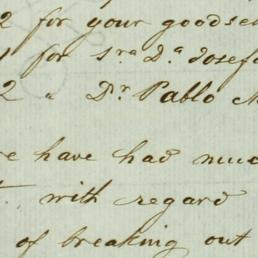 2 for your goodse
1 for Sra Da Josefa
2 " Dr Pablo M
re have had muc
with regard
of breaking out